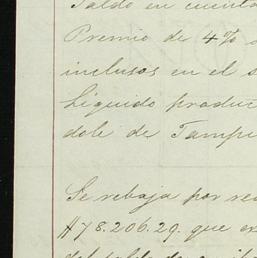 Saldo en cuenta
Premio de 4%
inclusos en el s
Líquido produc
dole de Tampi
Se rebaja por re
$78.206.29. que ex
del saldo de